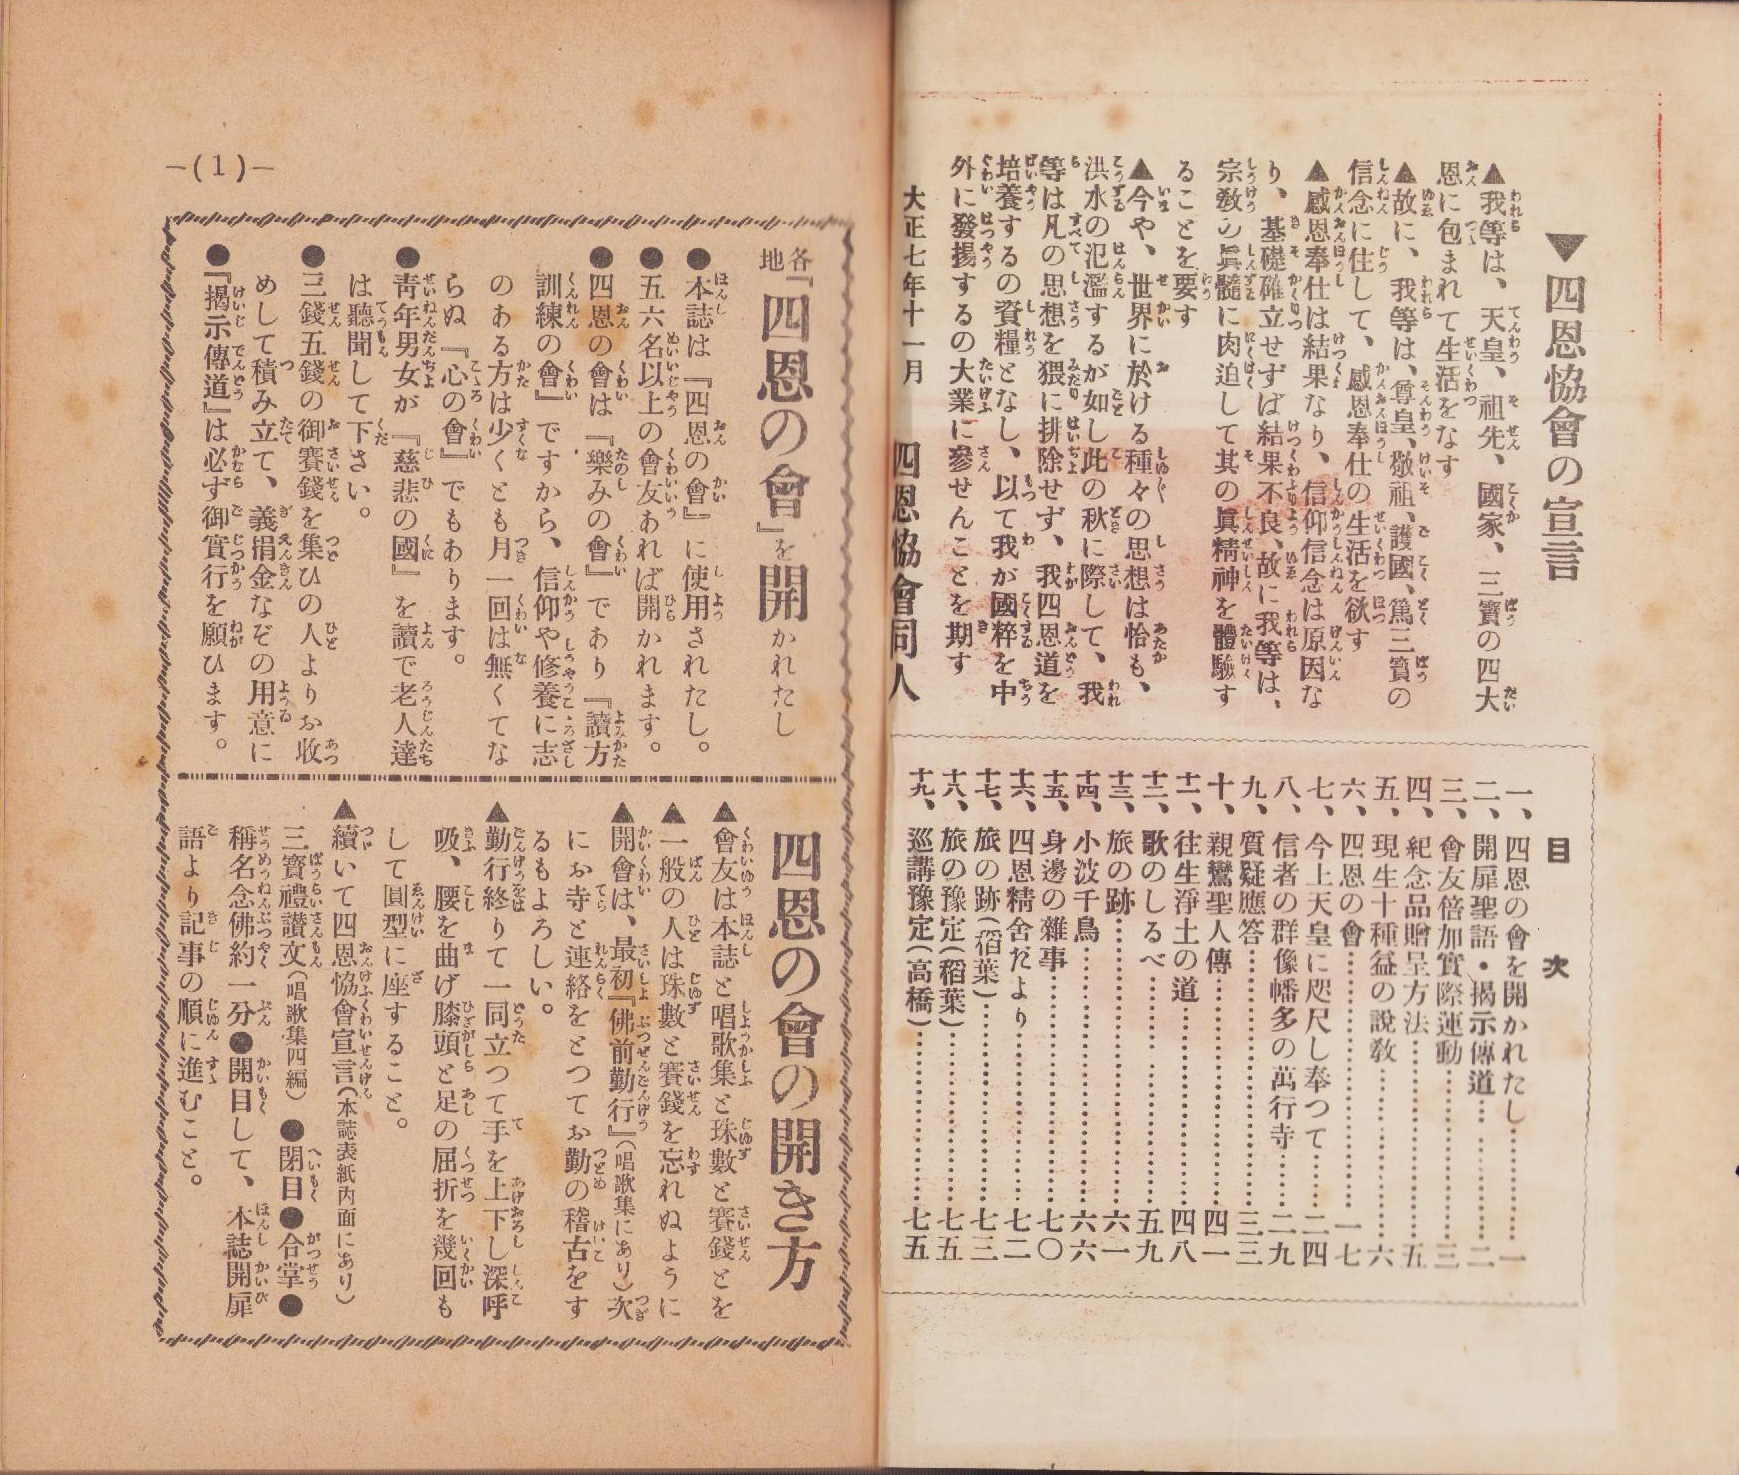 ▼四恩協會の宣言
▲我等は、天皇、祖先、國家、三寶の四大
恩に包まれて生活をなす
▲故に、我等は、尊皇、敬祖、護國、篤三寶の
信念に住して、感恩奉仕の生活を欲す
▲感恩奉仕は結果なり、信仰信念は原因な
り、基礎確立せずば結果不良、故に我等は、
宗教の眞髓に肉迫して其の眞精神を體驗す
ることを要す
▲今や、世界に於ける種々の思想は恰も、
洪水の氾濫するが如し此の秋に際して、我
等は凡の思想を猥に排除せず、我四恩道を
培養するの資糧となし、以て我が國粹を中
外に發揚するの大業に參せんことを期す
大正七年十一月
四恩協會同人
目次
一、四恩の會を開かれたし…………一
二、開扉聖語・揭示傳道…………二
三、會友倍加實際運動…………三
四、紀念品贈呈方法…………五
五、現生十種益の說敎…………六
六、四恩の會…………一七
七、今上天皇に咫尺し奉つて……二四
八、信者の群像幡多の萬行寺……二九
九、質疑應答…………三三
十、親鸞聖人傳…………四一
十一、往生淨土の道…………四八
十二、歌のしるべ…………五九
十三、旅の跡…………六一
十四、小波千鳥…………六六
十五、身邊の雜事…………七〇
十六、四恩精舍だより…………七二
十七、旅の跡(稻葉)…………七三
十八、旅の豫定(稻葉)…………七五
十九、巡講豫定(高橋)…………七五
—(1)—
各地『四恩の會』を開かれたし
●本誌は『四恩の會』に使用されたし。
●五六名以上の會友あれば開かれます。
●四恩の會は『樂みの會』であり『讀方
訓練の會』ですから、信仰や修養に志
のある方は少くとも月一回は無くてな
らぬ『心の會』でもあります。
●靑年男女が『慈悲の國』を讀で老人達
は聽聞して下さい。
●三錢五錢の御賽錢を集ひの人よりお收
めして積み立て、義捐金なぞの用意に
●『揭示傳道』は必ず御實行を願ひます。
四恩の會の開き方
▲會友は本誌と唱歌集と珠數と賽錢とを
▲一般の人は珠數と賽錢を忘れぬように
▲開會は、最初『佛前勤行』(唱歌集にあり)次
にお寺と連絡をとつてお勤の稽古をす
るもよろしい。
▲勤行終りて一同立つて手を上下し深呼
吸、腰を曲げ膝頭と足の屈折を幾回も
して圓型に座すること。
▲續いて四恩協會宣言(本誌表紙內面にあり)
三寶禮讃文(唱歌集四編)●閉目●合掌●
稱名念佛約一分●開目して、本誌開扉
語より記事の順に進むこと。